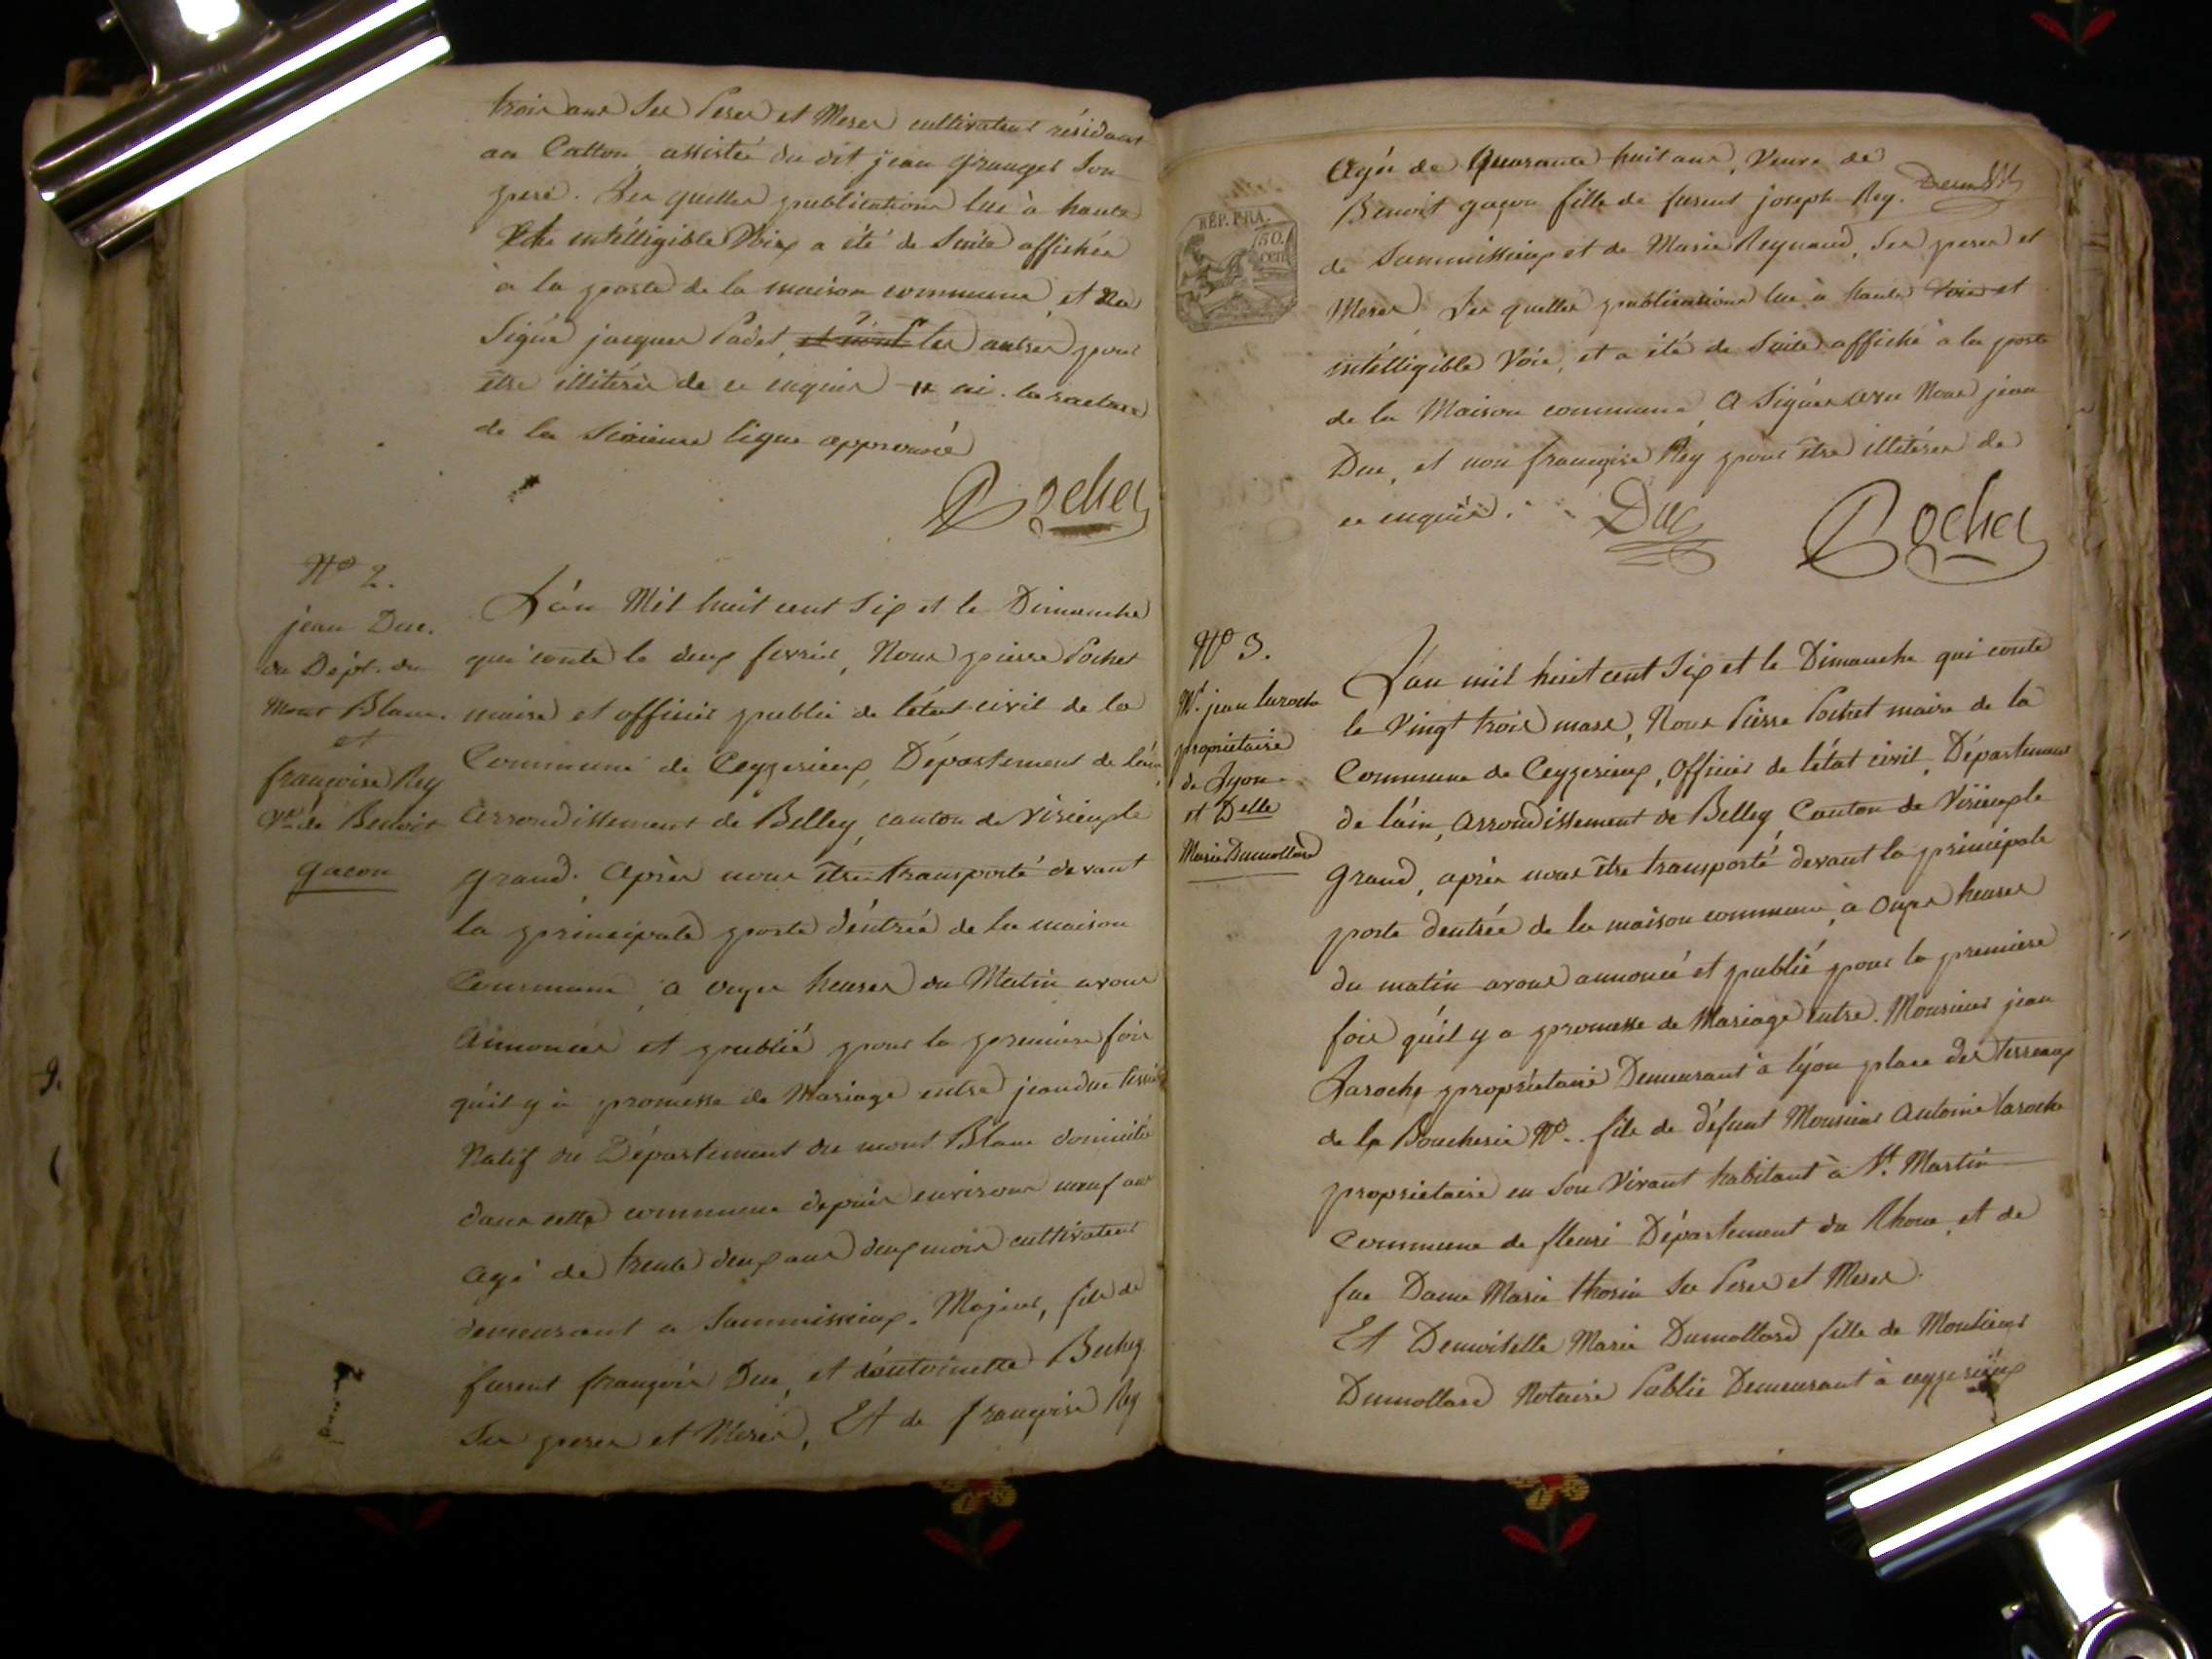 trois ans Ses Peres et Meres cultivateur résidant
au Catton, assistée du dit jean granger Son
pere. Les quelles publications lue à haute
et intélligible Voix a été de Suite affichée
à la porte de la maison commune, et
Signé jacques Padet, les autres pour
être illitérés de ce enquis
de la Sixieme ligne approuvé
Pochet
N° 2.
jean Duc.
du Dépt. du
Mont Blanc.
et
françoise Rey
Ve de Benoit
gacon
L'ân Mil huit cent Six et le Dimanche
qui conte le deux fevrier, Nous pierre Pochet
maire et officier public de létat civil de la
Commune de Ceyzerieux, Département de láin
arrondissement de Belley, canton de Virieux le
grand. après nous être transporté devant
la principale porte déntrée de la maison
Commune, a onze heures du Matin avons
annoncer et publié pour la premiere fois
qúil y à promesse de Mariage entre jean duc
Natif du Département du mont Blanc domicilié
dans cette commune depuis environs neuf ans
agé de trente deux ans deux mois cultivateur
demeurant a Sammissieux. Majeur, fils de
furent françois Duc, et dántoinette
Ses peres et Meres, Et de françoise Rey
RÉP. FRA.
50.
cen
Agée de Quarante huit ans, Veuve de
Benoit gaçon fille de furent joseph Rey.
de Sammissieux et de Marie Reynaud, Ses peres et
Meres Les quelles publications lue à haute voie et
intélligible Voie, et a été de Suite affiché à la porte
de la Maison commune, A Signer avec Nous jean
Duc, et non françoise Rey pour être illitérée de
ce enquis.
Duc
Pochet
N° 3.
Mr. jean laroche
propriétaire
de Lyon
et Delle
Marie Dumollard
L'an mil huit cent Six et le Dimanche qui conte
le Vingt trois mars, Nous Pierre Pochet maire de la
Commune de Ceyzerieux, Officier de létat civil, Département
de láin, arrondissement de Belley Canton de Virieux le
grand, après nous être transporté devant la principale
porte déntrée de la maison commune, à Onze heures
du matin avons annoncé et publié pour la premiere
fois qúil y a promesse de Mariage entre. Monsieur jean
Laroche propriétaire Demeurant à lyon place des terreaux
de la Boucherie N°.. fils de défunt Monsieur Antoine laroche
propriétaire en Son Vivant habitant à St. Martin
Commune de fleuri Département du Rhone, et de
fue Dame Marie thorin Ses Peres et Meres.
Et Demoiselle Marie Dumollard fille de Monsieur
Dumollard Notaire Public Demeurant à ceyzerieux